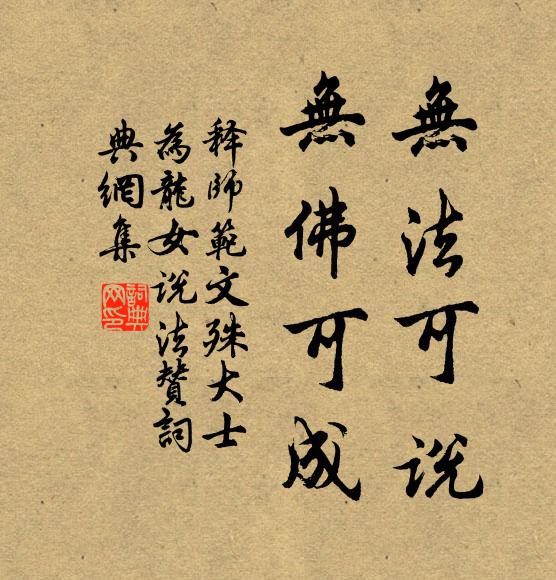 無法可说
無佛可成
释師範文殊大士
為龍女说法贊詞
典網集
詞典
网印